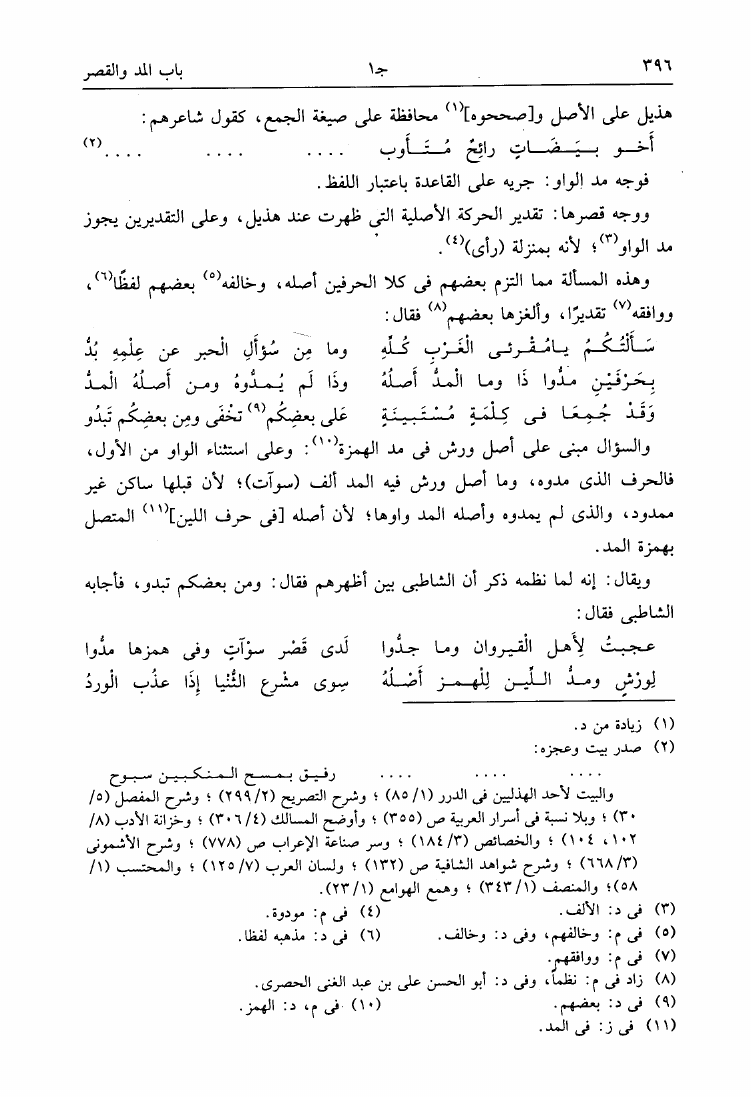 ٣٩٦ جـ١ باب المد والقصر
هذيل على الأصل و[صححوه](١) محافظة على صيغة الجمع، كقول شاعرهم:
أَخــو بــيَــضَــاتٍ رائِحٌ مُــتَــأَوب .... .... ....(٢)
فوجه مد الواو: جريه على القاعدة باعتبار اللفظ.
ووجه قصرها: تقدير الحركة الأصلية التي ظهرت عند هذيل، وعلى التقديرين يجوز
مد الواو(٣)؛ لأنه بمنزلة (رأى)(٤).
وهذه المسألة مما التزم بعضهم فى كلا الحرفين أصله، وخالفه(٥) بعضهم لفظًا(٦)،
ووافقه(٧) تقديرًا، وألغزها بعضهم(٨) فقال:
سَــأَلْتُكُــمُ يــامُــقْــرئــى الْغَــرْبِ كُــلِّهِ وما مِن سُؤَالِ الحبر عن عِلْمِهِ بُدُّ
بِحَرْفَيْنِ مدُّوا ذَا وما الْمدُّ أصلُهُ وذَا لَم يُـمـدُّوهُ ومـن أصـلُهُ المـدُّ
وَقَــدْ جُمِعَـا فـى كِـلْمَةٍ مُسْتَـبـينَـةٍ عَلى بعضِكُم(٩) تخْفَى ومِن بعضِكُم تَبدُو
والسؤال مبنى على أصل ورش فى مد الهمزة(١٠): وعلى استثناء الواو من الأول،
فالحرف الذى مدوه، وما أصل ورش فيه المد ألف (سوآت)؛ لأن قبلها ساكن غير
ممدود، والذى لم يمدوه وأصله المد واوها؛ لأن أصله [فى حرف اللين](١١) المتصل
بهمزة المد.
ويقال: إنه لما نظمه ذكر أن الشاطبى بين أظهرهم فقال: ومن بعضكم تبدو، فأجابه
الشاطبى فقال:
عـجـبـتُ لِأهـل الْقـيـروان ومـا جـدُّوا لَدى قَصْر سوْآتٍ وفى همزها مدُّوا
لِورْشٍ ومـدُّ الـلِّيـن لِلْهـمـز أَصْـلُهُ سِوى مشْرع الثُّنْيا إذَا عذُب الْوردُ
(١) زيادة من د.
(٢) صدر بيت وعجزه:
.... .... .... رفـيـق بـمـسـح الـمـنـكـبـيـن سـبـوح
والبيت لأحد الهذليين فى الدرر (١/ ٨٥) ؛ وشرح التصريح (٢/ ٢٩٩) ؛ وشرح المفصل (٥/
٣٠) ؛ وبلا نسبة فى أسرار العربية ص (٣٥٥) ؛ وأوضح المسالك (٤/ ٣٠٦) ؛ وخزانة الأدب (٨/
١٠٢، ١٠٤) ؛ والخصائص (٣/ ١٨٤) ؛ وسر صناعة الإعراب ص (٧٧٨) ؛ وشرح الأشمونى
(٣/ ٦٦٨) ؛ وشرح شواهد الشافية ص (١٣٢) ؛ ولسان العرب (٧/ ١٢٥) ؛ والمحتسب (١/
٥٨)؛ والمنصف (١/ ٣٤٣) ؛ وهمع الهوامع (١/ ٢٣).
(٣) فى د: الألف. (٤) فى م: مودوة.
(٥) فى م: وخالفهم، وفى د: وخالف. (٦) فى د: مذهبه لفظا.
(٧) فى م: ووافقهم.
(٨) زاد فى م: نظماً، وفى د: أبو الحسن على بن عبد الغنى الحصرى.
(٩) فى د: بعضهم. (١٠) فى م، د: الهمز.
(١١) فى ز: فى المد.